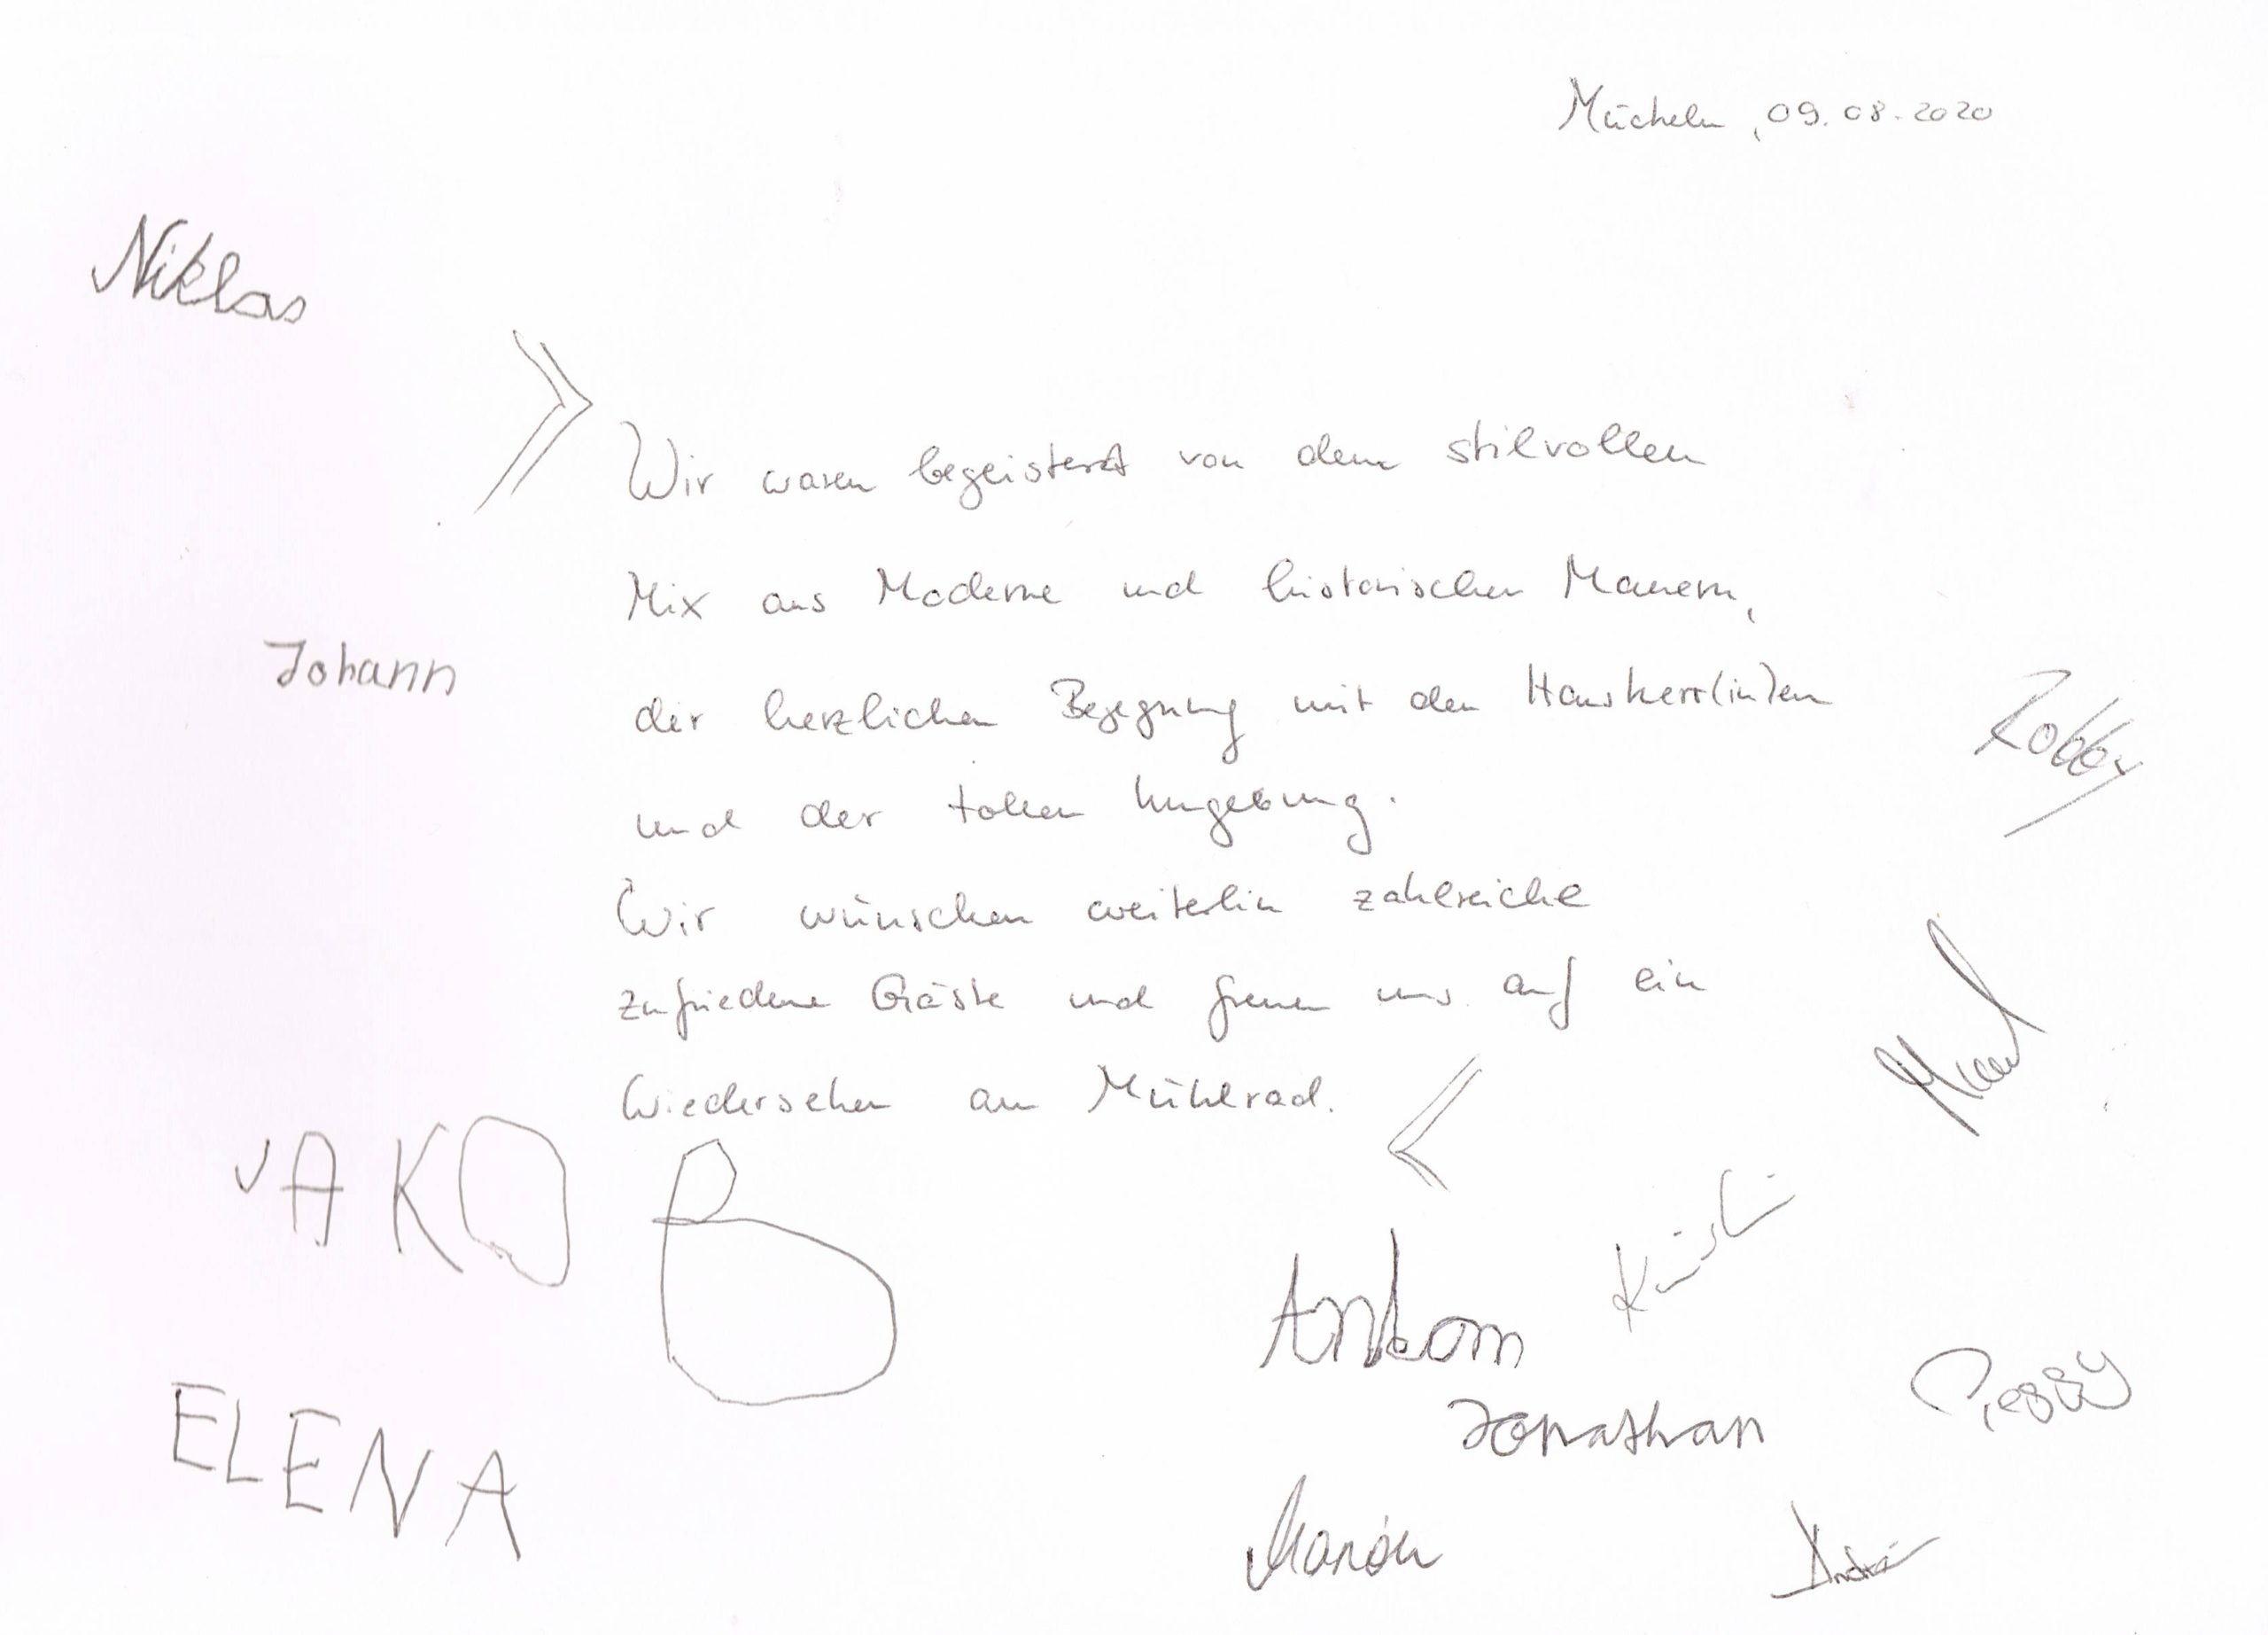 Mücheln, 09.08.2020
Niklas
Wir waren begeistert von dem stilvollen
Mix aus Moderne und historischen Mauern,
Johann
der herzlichen Begegnung mit den Hausherr(in)en
Robby
und der tollen Umgebung.
Wir wünschen weiterhin zahlreiche
zufriedene Gäste und freuen uns auf ein
Wiedersehen am Mühlrad.
JAKOB
Jonathan
Peggy
ELENA
André